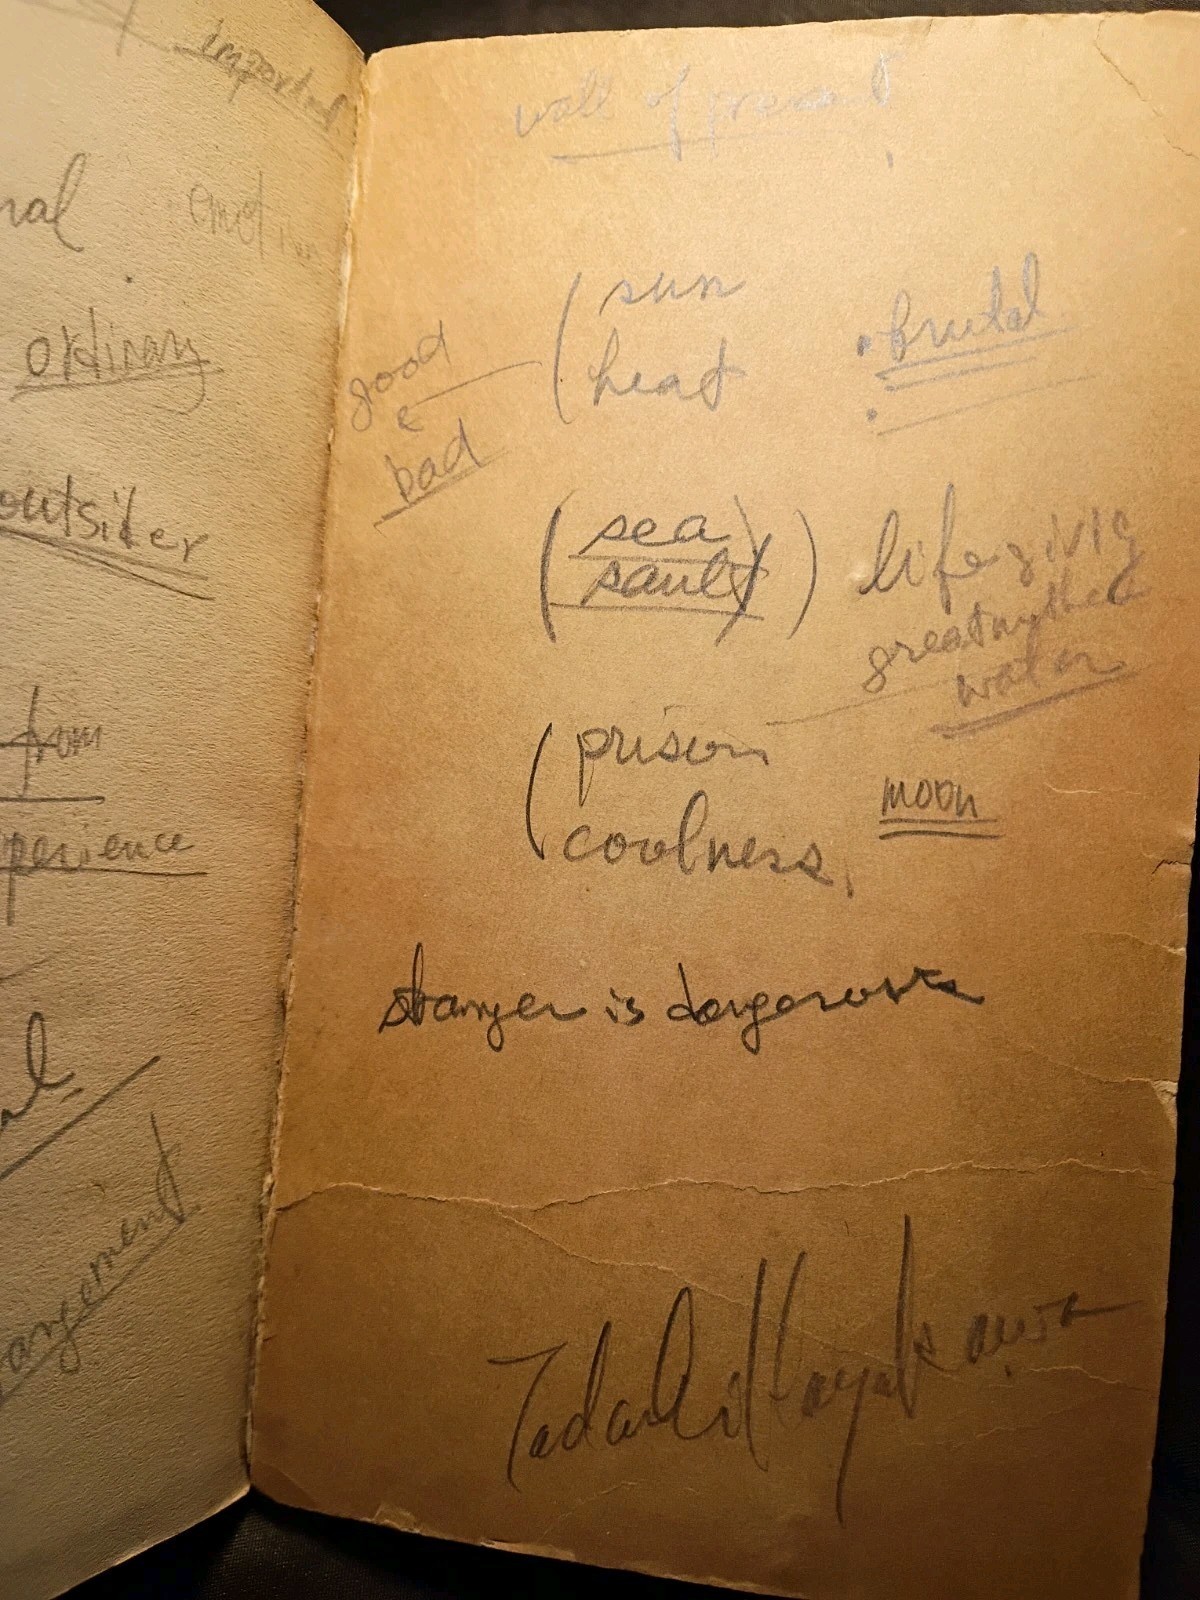 important
emotion
ordinary
outsider
from
perience
angement
wall of present
sun
heat
brutal
good
e
bad
sea
sault
life giving
great mythed
water
prison
coolness,
moon
stranger is dangerous
Tadashi Hayakawa